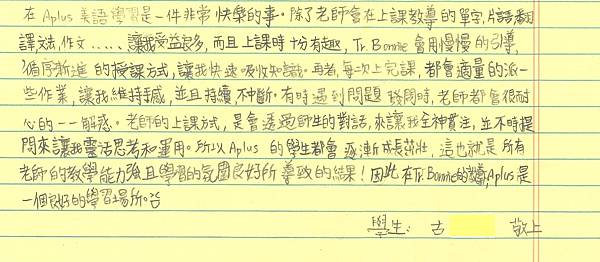 在 Aplus 美語學習是一件非常快樂的事。除了老師會在上課教導的單字,片語,翻
譯,文法,作文.....讓我受益良多,而且上課時十分有趣,Tr.Bonnie 會用慢慢的引導,
循序漸進的授課方式,讓我快速吸收知識。再者,每次上完課,都會適量的派一
些作業,讓我維持手感,並且持續,不中斷。有時遇到問題發問時,老師都會很耐
心的一一解惑。老師的上課方式,是會透過師生的對話,來讓我全神貫注,並不時提
問來讓我靈活思考和運用。所以Aplus 的學生都會逐漸成長茁壯,這也就是所有
老師的教學能力強且學習的氛圍良好所導致的結果!因此,在Tr.Bonnie的教導,Aplus是
一個良好的學習場所。
學生: 古 敬上